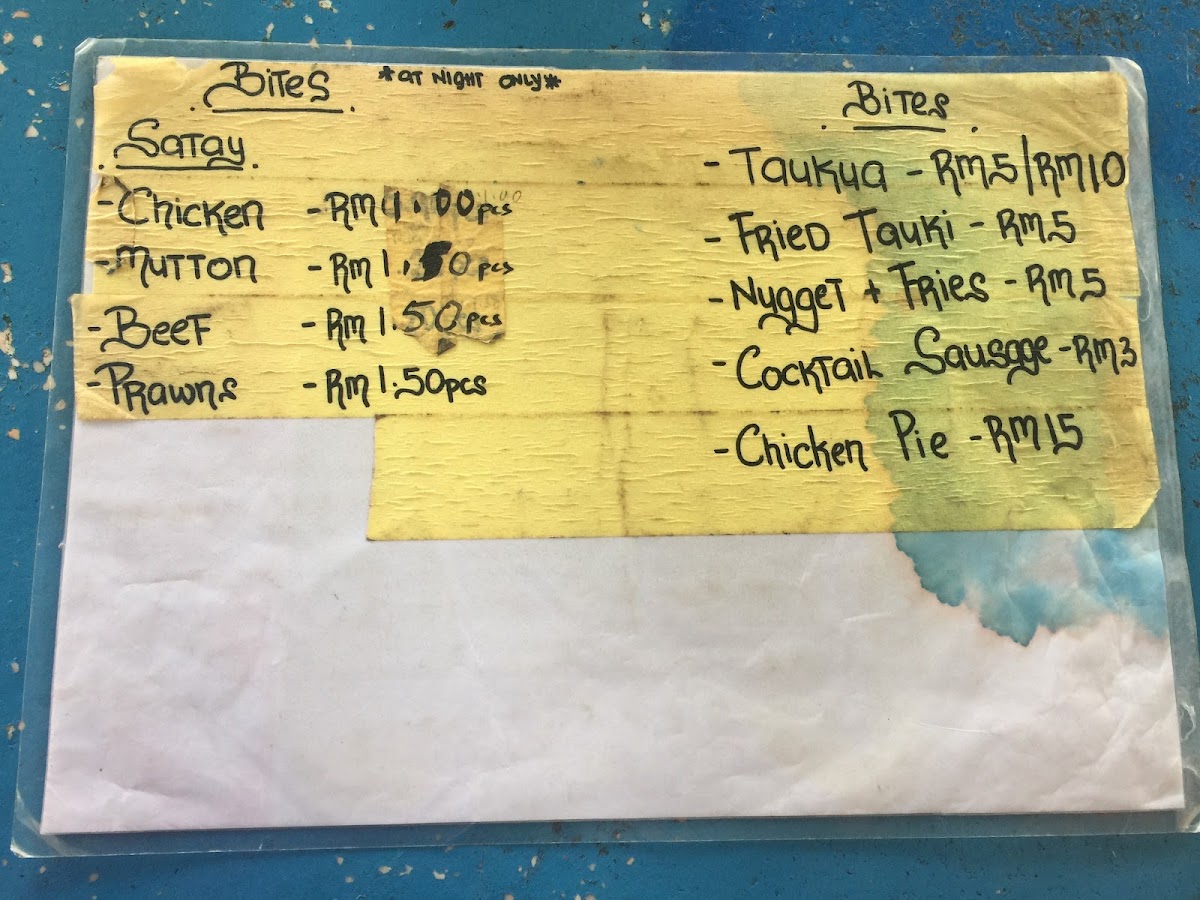 Bites *at night only*
Satay
- Chicken - RM 1.00 pcs
- Mutton - RM 1.50 pcs
- Beef - RM 1.50 pcs
- Prawns - RM 1.50 pcs
Bites
- Taukua - RM5/RM10
- Fried Tauki - RM5
- Nygget + Fries - RM5
- Cocktail Sausage - RM3
- Chicken Pie - RM15